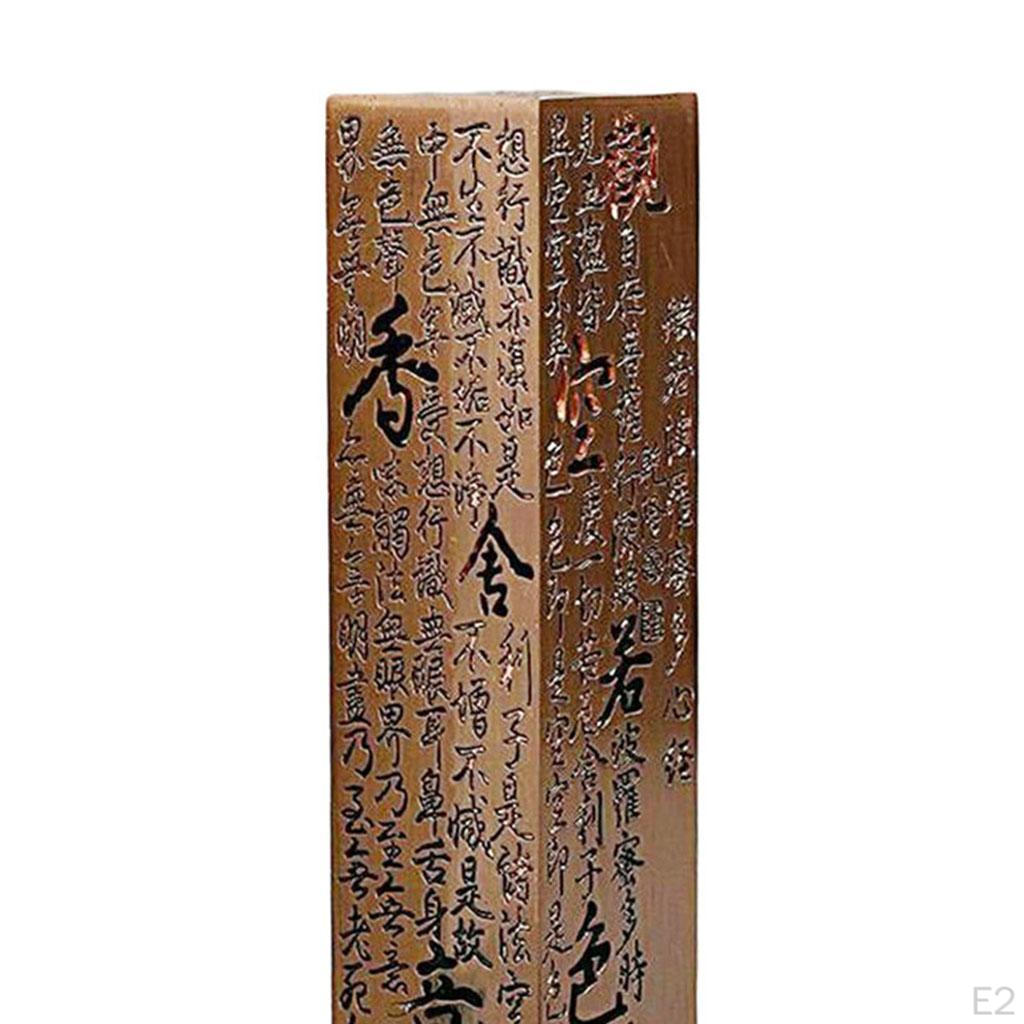 般若波羅蜜多心经
觀自在菩薩行深般若波羅蜜多時
見五蘊皆空度一切苦厄舍利子色
異空空不異色色即是空空即是色
想行識亦復如是舍利子是諸法空
不生不滅不垢不淨不增不減是故
中無色無受想行識無眼耳鼻舌身
無色聲香味觸法無眼界乃至無意
界無無明亦無無明盡乃至無老死
E2